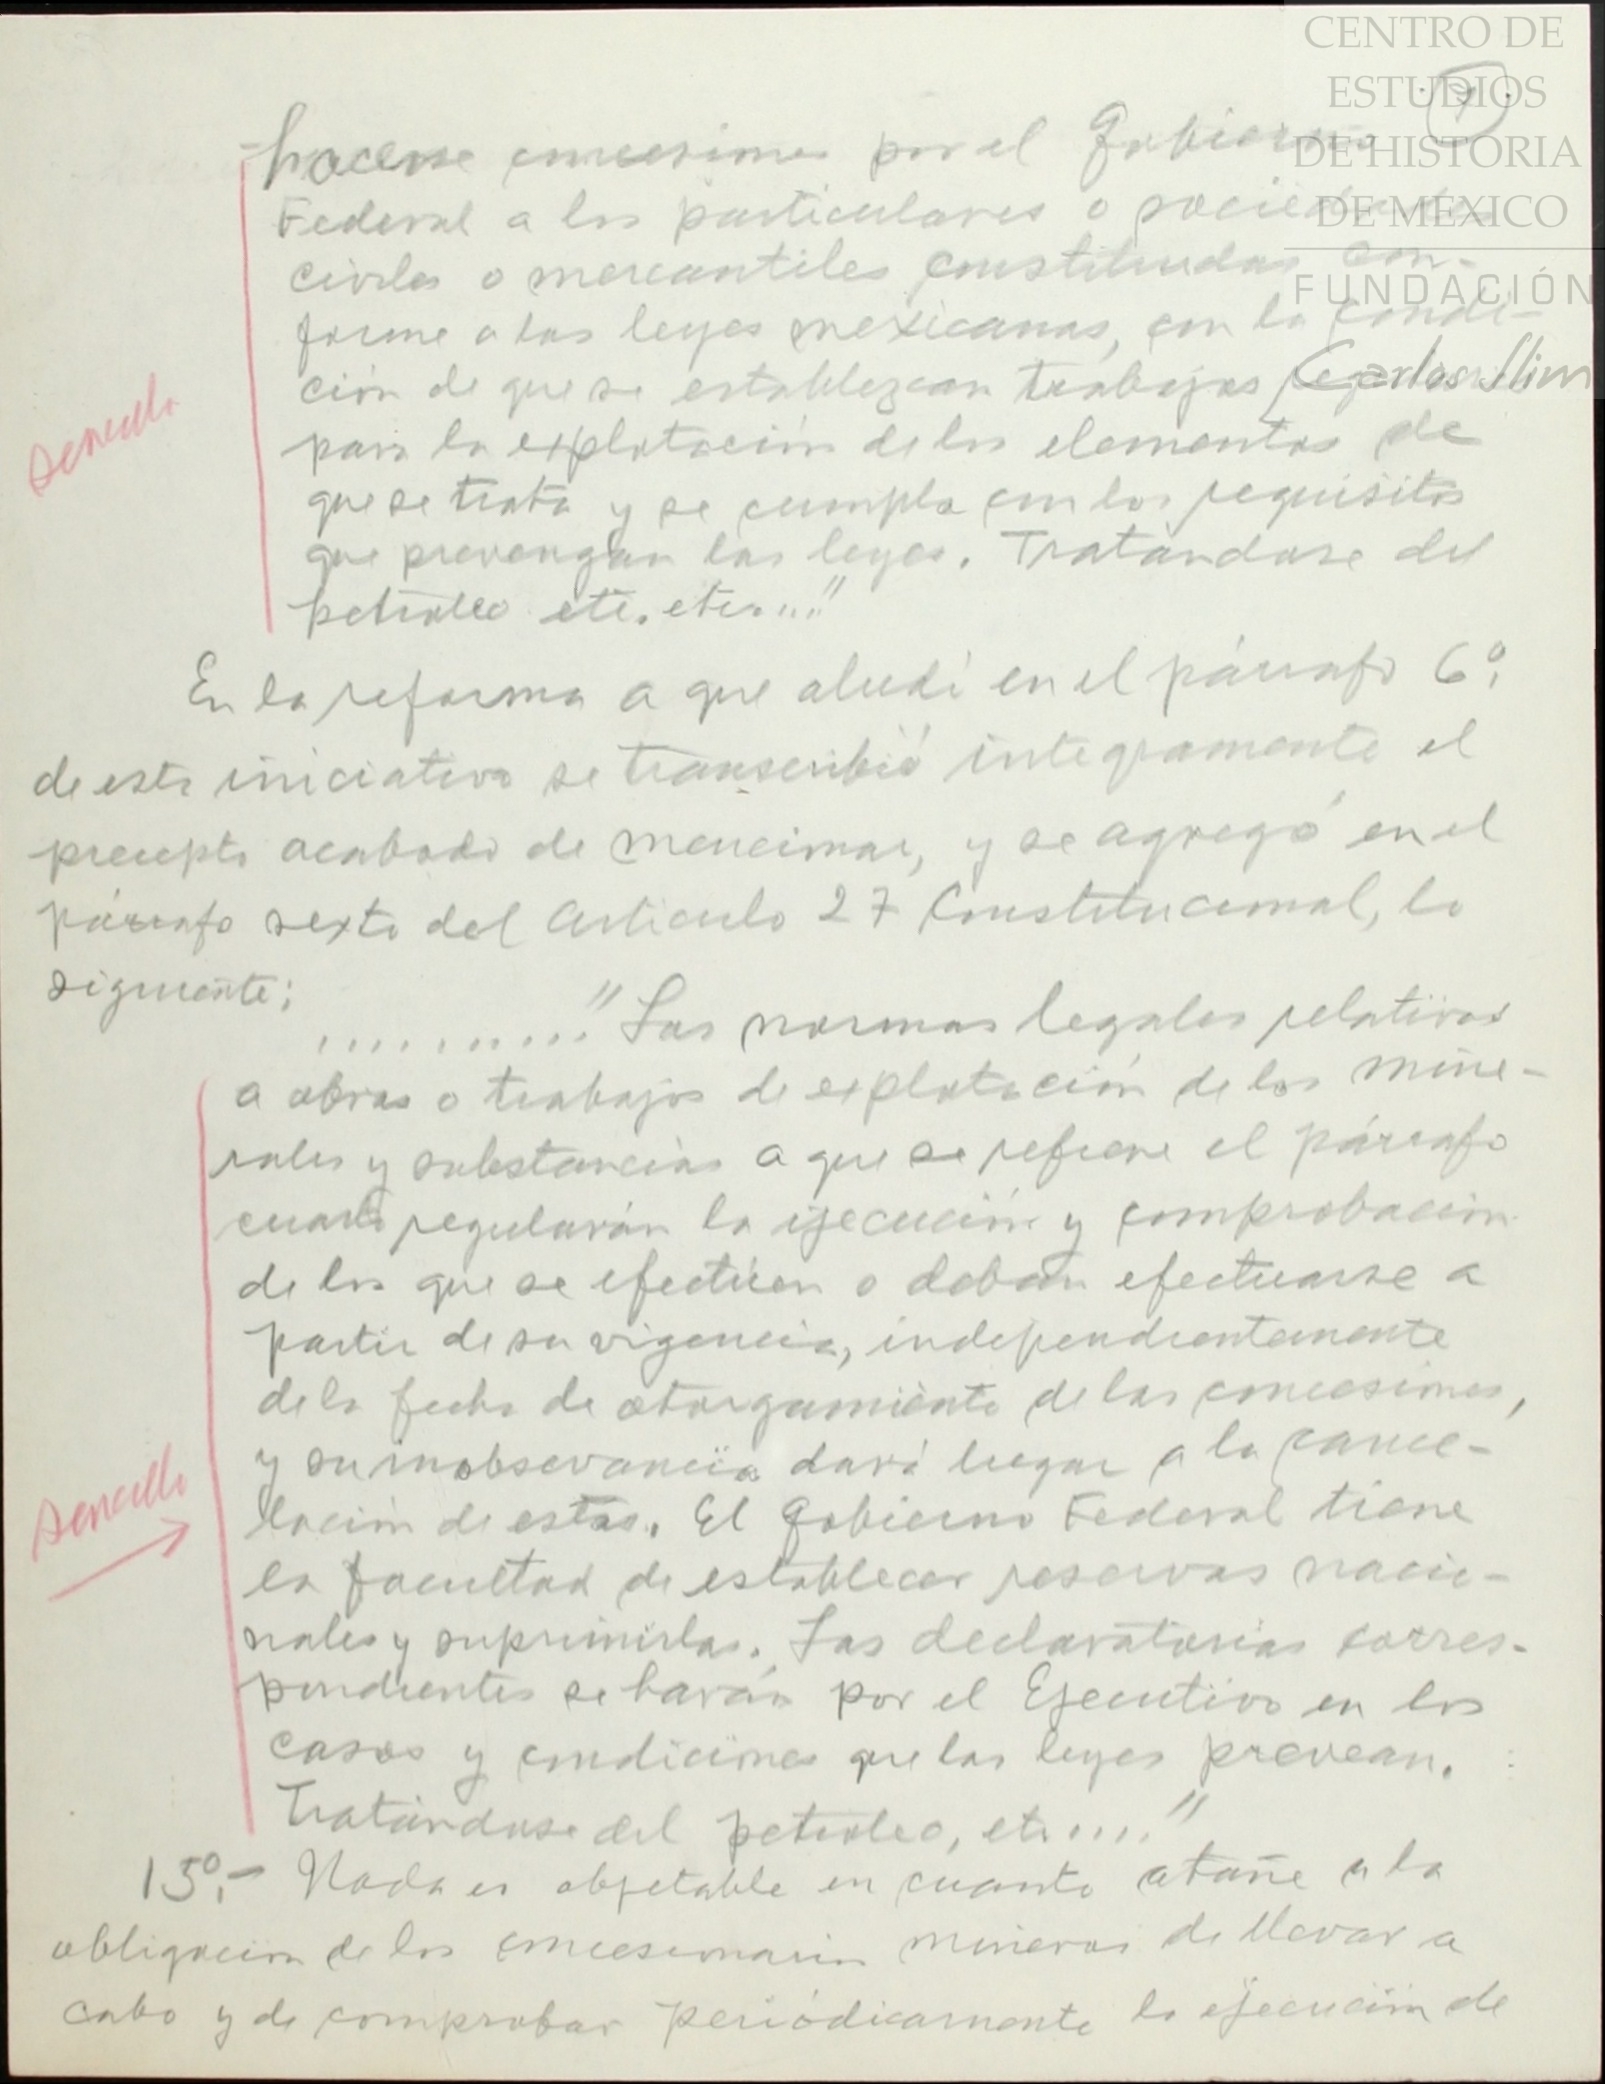 CENTRO DE
ESTUDIOS
DE HISTORIA
DE MÉXICO
FUNDACIÓN
Carlos Slim
hacerse concesiones por el Gobierno
Federal a los particulares o sociedades
civiles o mercantiles constituidas con-
forme a las leyes mexicanas, con la condi-
ción de que se establezcan trabajos
para la explotación de los elementos de
que se trata y se cumpla con los requisitos
que prevengan las leyes. Tratándose del
petróleo etc. etc...."
sencillo
En la reforma a que aludí en el párrafo 6º.
de esta iniciativa se transcribió íntegramente el
precepto acabado de mencionar, y se agregó en el
párrafo sexto del Artículo 27 Constitucional, lo
siguiente:
.......... "Las normas legales relativas
a obras o trabajos de explotación de los mine-
rales y substancias a que se refiere el párrafo
cuarto regularán la ejecución y comprobación
de los que se efectúen o deban efectuarse a
partir de su vigencia, independientemente
de la fecha de otorgamiento de las concesiones,
y su inobservancia dará lugar a la cance-
lación de estas. El Gobierno Federal tiene
la facultad de establecer reservas nacio-
nales y suprimirlas. Las declaratorias corres-
pondientes se harán por el Ejecutivo en los
casos y condiciones que las leyes prevean.
Tratándose del petróleo, etc...."
sencillo
15º.- Nada es objetable en cuanto atañe a la
obligación de los concesionarios mineros de llevar a
cabo y de comprobar periódicamente la ejecución de